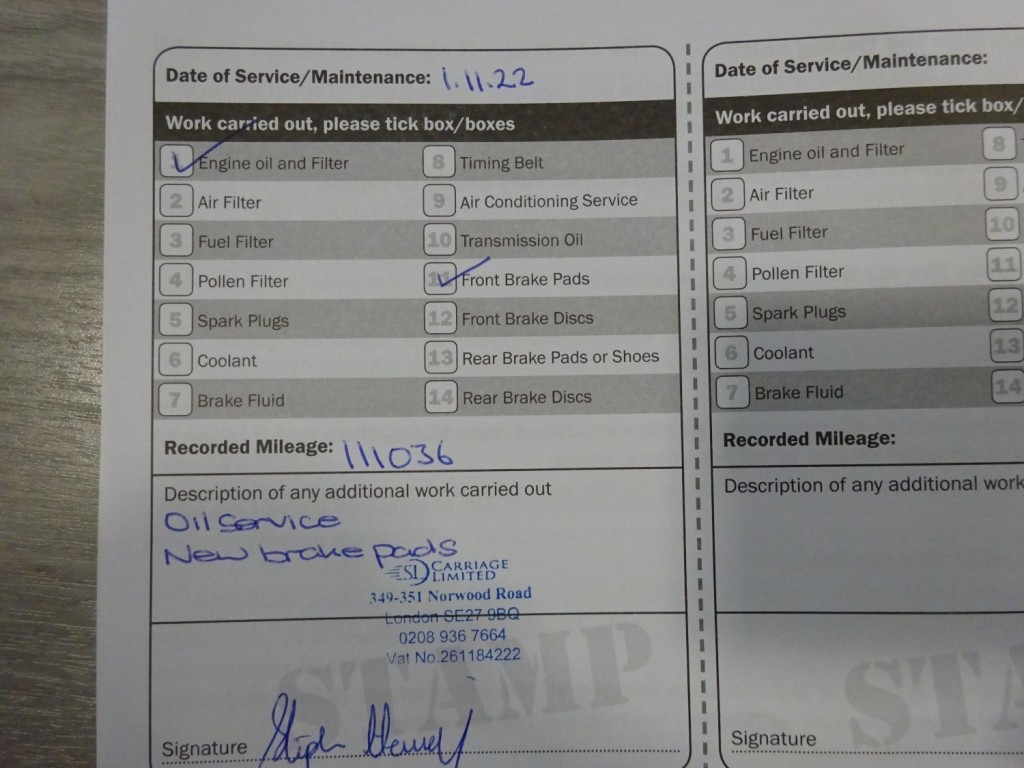 Date of Service/Maintenance: 1.11.22
Work carried out, please tick box/boxes
1 Engine oil and Filter
2 Air Filter
3 Fuel Filter
4 Pollen Filter
5 Spark Plugs
6 Coolant
7 Brake Fluid
8 Timing Belt
9 Air Conditioning Service
10 Transmission Oil
11 Front Brake Pads
12 Front Brake Discs
13 Rear Brake Pads or Shoes
14 Rear Brake Discs
Recorded Mileage: 111036
Description of any additional work carried out
Oil service
New brake pads
SD CARRIAGE
LIMITED
349-351 Norwood Road
London SE27 9BQ
0208 936 7664
Vat No.261184222
STAMP
Signature
Date of Service/Maintenance:
Work carried out, please tick box/
1 Engine oil and Filter
2 Air Filter
3 Fuel Filter
4 Pollen Filter
5 Spark Plugs
6 Coolant
7 Brake Fluid
8
9
10
11
12
13
14
Recorded Mileage:
Description of any additional work
STA
Signature